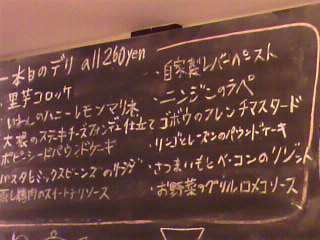 本日のデリ all 260yen
・里芋コロッケ
いわしのハニーレモンマリネ
大根のステーキチーズフォンデュ仕立て
ポピーシードパウンドケーキ
パスタとミックスビーンズのサラダ
蒸し鶏肉のスイートチリソース
・自家製レバーペースト
・ニンジンのラペ
ゴボウのフレンチマスタード
・リンゴとレーズンのパウンドケーキ
・さつまいもとベーコンのリゾット
・お野菜のグリルロメスコソース